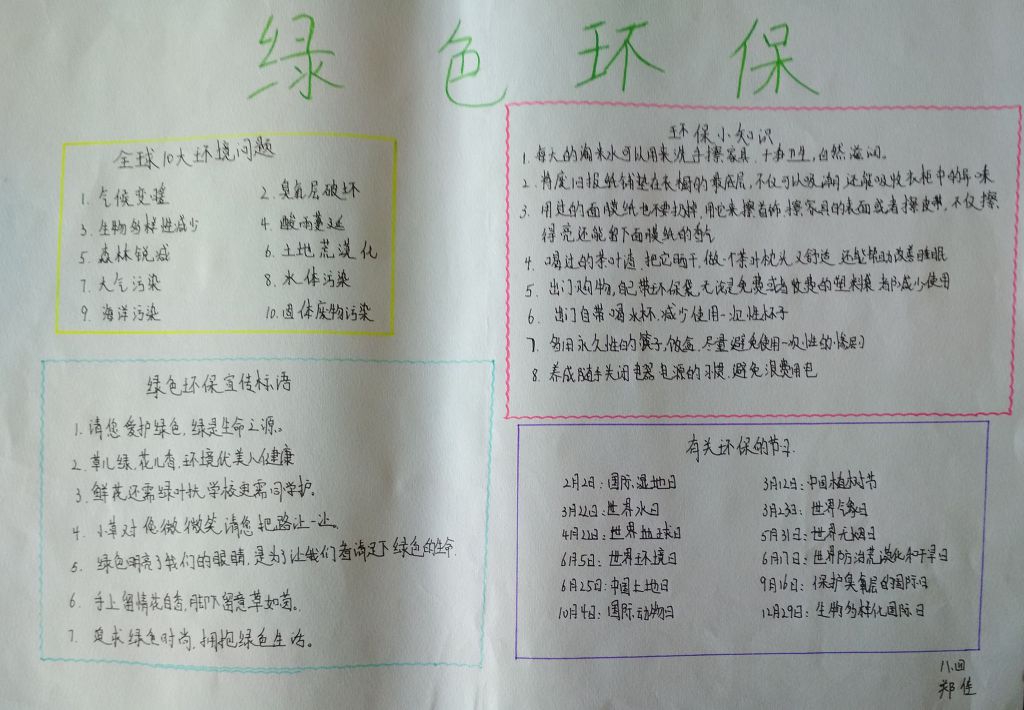 绿色环保
全球10大环境问题
1. 气候变暖
2. 臭氧层破坏
3. 生物多样性减少
4. 酸雨蔓延
5. 森林锐减
6. 土地荒漠化
7. 大气污染
8. 水体污染
9. 海洋污染
10. 固体废物污染
环保小知识
1. 每天的淘米水可以用来洗手擦家具,干净卫生,自然滋润。
2. 将废旧报纸铺垫在衣橱的最底层,不仅可以吸潮,还能吸收衣柜中的异味
3. 用过的面膜纸也不要扔掉,用它来擦首饰,擦家具的表面或者擦皮带,不仅擦
得亮还能留下面膜纸的香气
4. 喝过的茶叶渣,把它晒干,做一个茶叶枕头又舒适,还能帮助改善睡眠
5. 出门购物,自己带环保袋,无论是免费或者收费的塑料袋,都减少使用
6. 出门自带喝水杯,减少使用一次性杯子
7. 多用永久性的筷子、饭盒,尽量避免使用一次性的
8. 养成随手关闭电器电源的习惯,避免浪费用电
绿色环保宣传标语
1. 请您爱护绿色,绿是生命之源。
2. 草儿绿,花儿香,环境优美人健康
3. 鲜花还需绿叶扶,学校更需同学护。
4. 小草对您微微笑,请您把路让一让。
5. 绿色明亮了我们的眼睛,是为了让我们看清足下绿色的生命.
6. 手上留情花自香,脚下留意草如茵。
7. 追求绿色时尚,拥抱绿色生活。
有关环保的节日
2月2日:国际湿地日
3月12日:中国植树节
3月22日:世界水日
3月23日:世界气象日
4月22日:世界地球日
5月31日:世界无烟日
6月5日:世界环境日
6月17日:世界防治荒漠化和干旱日
6月25日:中国土地日
9月16日:保护臭氧层的国际日
10月4日:国际动物日
12月29日:生物多样化国际日
八.四
郑佳